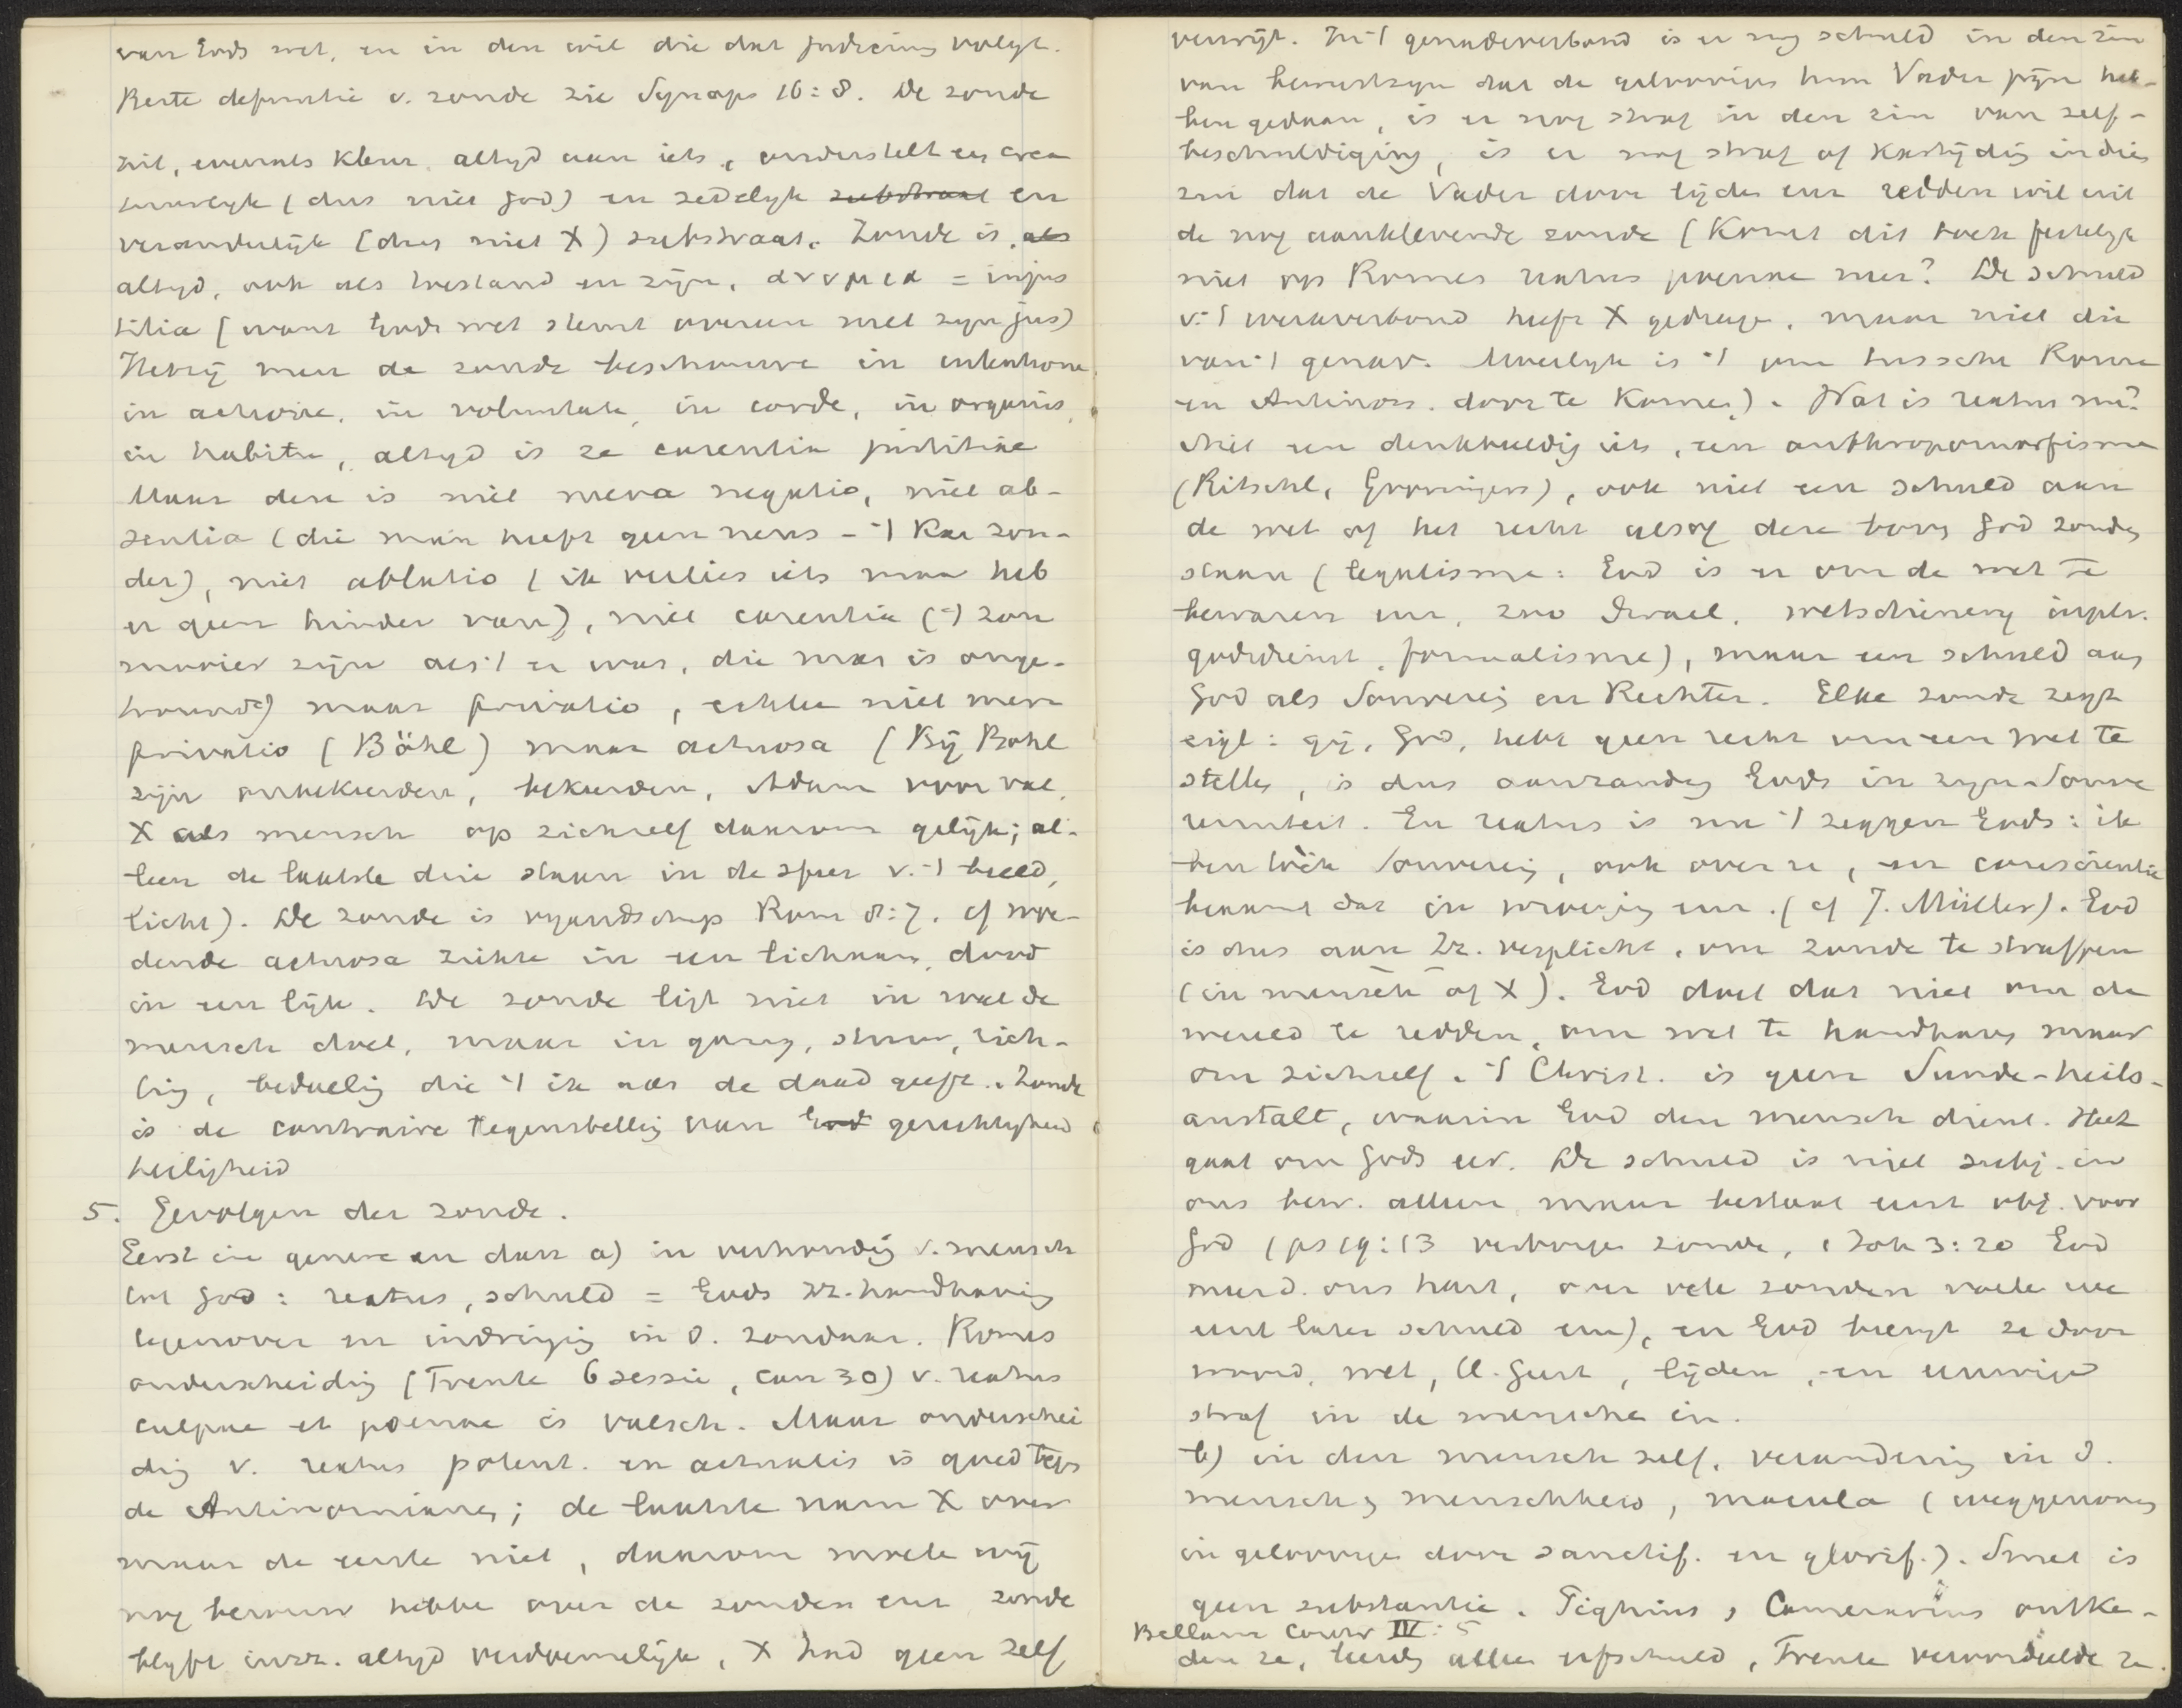 van Gods wet, en in den wil die dat judicium volgt.
Beste definitie v. zonde zie Synops 16:8. De zonde
zit, evenals kleur, altyd aan iets, onderstelt een crea
tuurlyk (dus niet God) en zedelyk substraat en
veranderlijk (dus niet X) substraat. Zonde is als
altyd, ook als toestand en zijn, ανομια = injus
titia (want Gods wet stemt overeen met zyn jus)
Hetzij men de zonde beschouwe in intentione
in actione, in voluntate, in corde, in organis,
in habitu, altyd is ze carentia justitiae
Maar deze is niet mera negatio, niet ab-
sentia (die man heeft geen neus - 't kan zon-
der), niet ablatio (ik verlies iets maar heb
er geen hinder van), niet carentia ('t zou
mooier zijn als 't er was, die muur is onge-
) maar privatio, echter niet mera
privatio (Böhl) maar actuosa (Bij Böhl
zijn onbekeerden, bekeerden, Adam voor val,
X als mensch op zichzelf daarom gelijk; al-
leen de laatste drie staan in de sfeer v. 't beeld,
licht). De zonde is vyandschap Rom 8:7. cf woe-
dende actuosa ziekte in een lichaam, dood
in een lijk. De zonde ligt niet in wat de
mensch doet, maar in gang, stuur, rich-
ting, bedoeling die 't ik aan de daad geeft. Zonde
is de contraire tegenstelling van God gerechtigheid
heiligheid
5. Gevolgen der zonde.
Eerst in genere en dan a) in verhouding v. mensch
tot God: reatus, schuld = Gods zz. handhaving
tegenover en indringing in d. zondaar. Romes
onderscheiding (Trente 6 sessie, can 30) v. reatus
culpae et poenae is valsch. Maar onderschei
ding v. reatus potent. en actualis is goed tegen
de Antinomianen; de laatste nam X over
maar de eerste niet, daarom moeten wij
nog berouw hebben over de zonden en zonde
blyft in zz. altyd verdoemelijk, X had geen zelf
verwijt. In 't genadeverbond is er nog schuld in den zin
van bewustzyn dat de geloovigen hun Vader pijn heb-
ben gedaan, is er nog straf in den zin van zelf-
beschuldiging, is er nog straf of kastijding in dien
zin dat de Vader door lijden ons redden wil uit
de nog aanklevende zonde (Komt dit toch feitelyk
niet op Romes reatus poenae neer? De schuld
v. 't werkverbond heeft X gedragen, maar niet die
van 't genav. Moeilyk is 't om tusschen Rome
en Antinom. door te komen). Wat is reatus nu?
Niet een denkbeeldig iets, een anthropomorfisme
(Ritschl, Groningers), ook niet een schuld aan
de wet of het recht alsof deze boven God zouden
staan (legalisme: God is er om de wet te
bewaren enz, zoo Israel, wetsdienery in plts.
godsdienst, formalisme), maar een schuld aan
God als Souverein en Rechter. Elke zonde zegt
eigl: gij, God, hebt geen recht om een wet te
stellen, is dus aanranding Gods in zyn Souve
reiniteit. En reatus is nu 't zeggen Gods: ik
ben tóch Souverein, ook over u, en consciëntie
beaamt dat in wroeging enz. (cf J. Müller). God
is dus aan Zz. verplicht, om zonde te straffen
(in mensch òf X). God doet dat niet om de
wereld te redden, om wet te handhaven maar
om zichzelf. 't Christ. is geen Sünde-heils-
anstalt, waarin God den mensch dient. Het
gaat om Gods eer. De schuld is niet subj. in
ons bew. alleen maar bestaat eerst obj. voor
God (ps 19:13 verborgen zonde, 1 Joh 3:20 God
meerd. ons hart, over vele zonden voelen we
eerst later schuld enz), en God brengt ze door
woord, wet, H. Geest, lijden, en eeuwige
straf in de menschen in.
b) in den mensch zelf, verandering in d.
mensch, menschheid, macula (weggenomen
in geloovigen door sanctif. en glorif.). Smet is
geen substantie. Pighius, Camerarius ontke-
Bellarm Contr IV: 5
den ze, leerden alleen erfschuld, Trente veroordeelde ze.